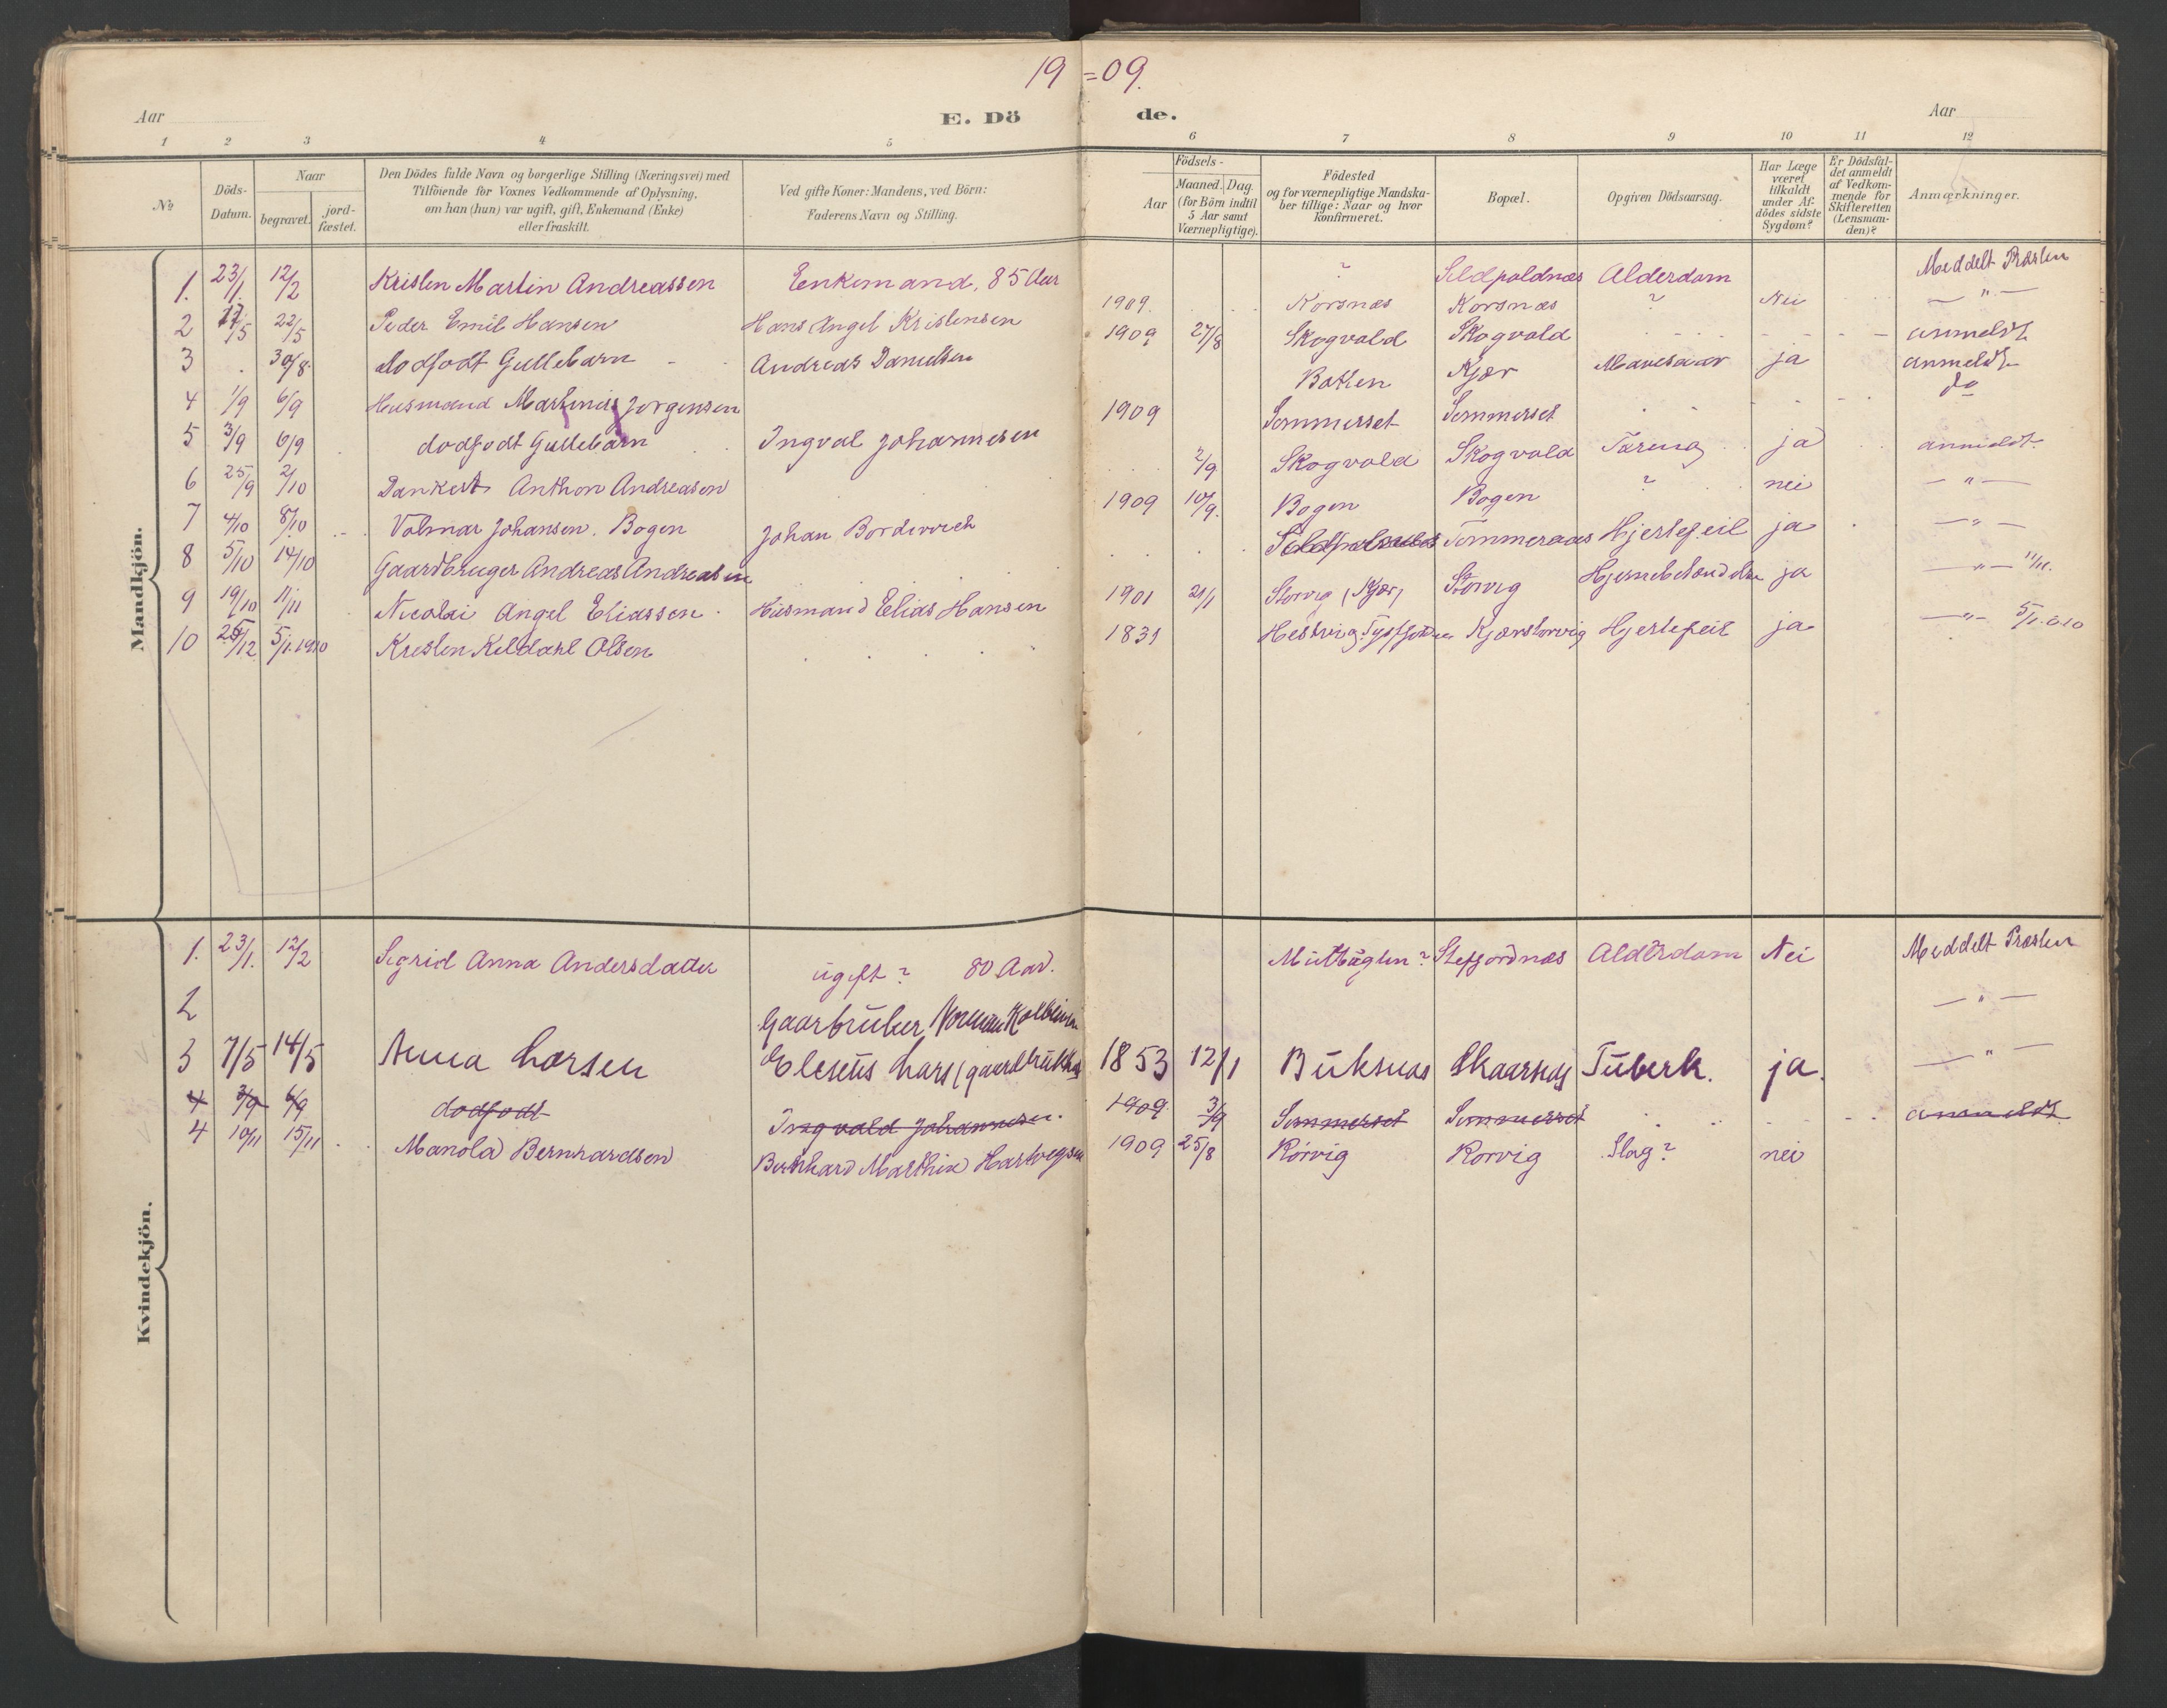 19=09.
Aar
E. Dö
de.
Aar
1 2 3 4 5 6 7 8 9 10 11 12
No
Döds-Datum.
Naar
begravet.
jord-fæstet.
Den Dödes fulde Navn og borgerlige Stilling (Næringsvei) med
Tilföiende for Voxnes Vedkommende af Oplysning,
om han (hun) var ugift, gift, Enkemand (Enke)
eller fraskilt.
Ved gifte Koner: Mandens, ved Börn:
Faderens Navn og Stilling.
Födsels-
Aar
Maaned. Dag.
(for Börn indtil
5 Aar samt
Værnepligtige).
Födested
og for værnepligtige Mandska-
ber tillige: Naar og hvor
konfirmeret.
Bopæl.
Opgiven Dödsaarsag.
Har Læge
været
tilkaldt
under Af-
dödes sidste
Sygdom?
Er Dödsfal-
det anmeldt
af Vedkom-
mende for
Skifteretten
(Lensman-
den)?
Anmærkninger.
Mandkjön.
1. 23/1. 12/2 Kristen Martin Andreassen Enkemand, 85 Aar ? Seldpoldnæs Alderdom Meddelt Præsten
2 /5 22/5 Peder Emil Hansen Hans Angel Kristensen 1909. Korsnæs Korsnæs ? Nei — " —
3 30/8. dodfodt Guttebarn Andreas Danielsen 1909 27/8 Skogvold Skogvold anmeldt
4 1/9 6/9 Husmand Martinus Jorgensen Botten Kjær Mavesaar ja anmeldt
5 3/9 6/9 dodfodt Guttebarn Ingval Johannesen 1909 Sommerset Sommerset do
6 25/9 2/10 Dankert Anthon Andreasen 2/9 Skogvold Skogvold Tæring ja anmeldt
7 4/10 8/10 Volmar Johansen. Bogen Johan Bordevich 1909 10/9. Bogen Bogen ? nei — " —
8 5/10 14/10 Gaardbruger Andreas Andreasen Tommeraas Hjertefeil ja — " —
9 19/10 11/11 Nicolai Angel Eliassen. Husmand Elias Hansen 1901 21/1 Storvig (Kjær) Storvig Hjernebetændelse ja — " — 11/11.
10 /12 5/1.1910 Kristen Keldahl Olsen 1831 Hestvig. Tysfjorden Kjærstorvig Hjertefeil ja — " — 5/1.010
Kvindekjön.
1. 23/1. 12/2 Sigrid Anna Andersdatter ugift? 80 Aar. Stefjordnæs Alderdom Nei Meddelt Præsten
2 — " —
Gaarbruker, Norman
3 7/5 14/5 Anna Larsen Eleseus Lars (gaardbruker 1853 12/1 Buksnæs Skaarnæs Tuberk. ja. — " —
4 3/9 6/9 dodfodt Ingvald Johannesen. 1909. 3/9 Sommerset Sommerset anmeldt
4 10/11 15/11 Manola Bernhardsen Bernhard Marthin Hartvigsen 1909 25/8 Korvig Korvig Slag? nei